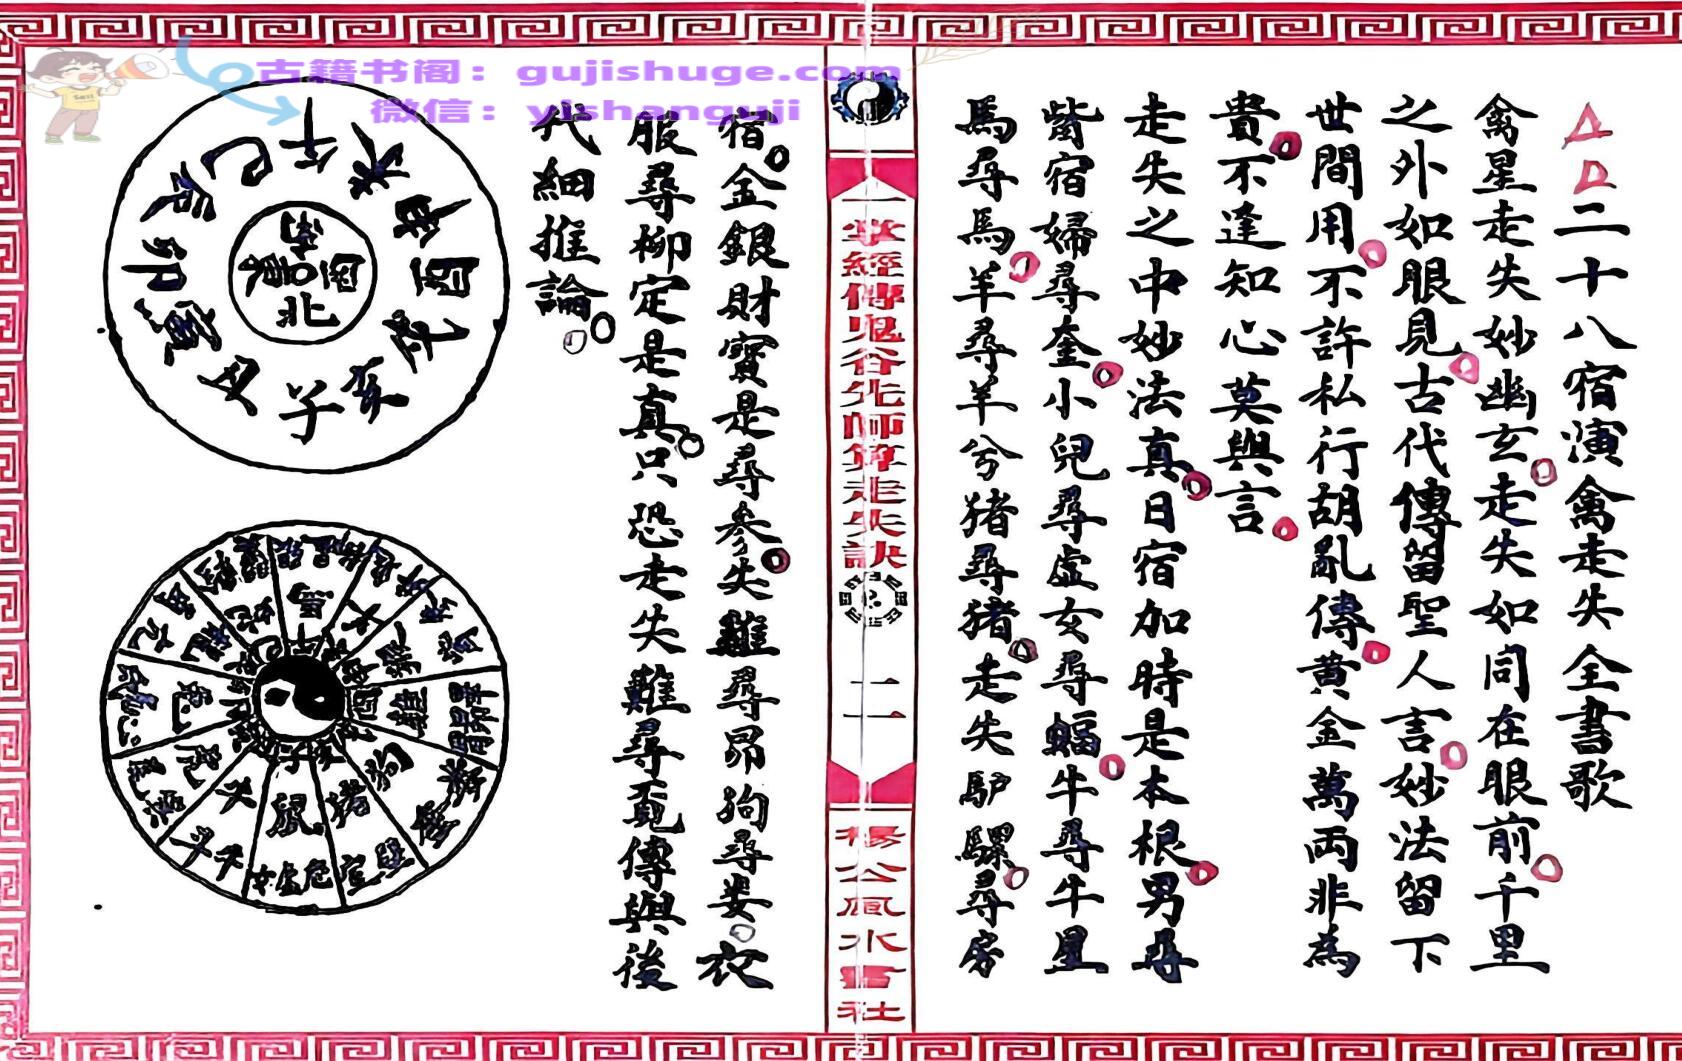 古籍书阁：gujishuge.com
微信：yishanguji
二十八宿演禽走失全書歌
禽星走失妙幽玄走失如同在眼前千里
之外如眼見古代傳留聖人言妙法留下
世間用不許私行胡亂傳黄金萬両非為
貴不逢知心莫與言
走失之中妙法真日宿加時是本根男尋
觜宿婦尋奎小兒尋虛女尋蝠牛尋牛星
馬尋馬羊尋羊兮猪尋猪走失馿騾尋房
一掌經傳鬼谷先師算走失訣
二一
楊公風水書社
宿金銀財寳是尋參失雞尋昴狗尋婁衣
服尋柳定是真只恐走失難尋覓傳與後
代細推論
午未申酉戌亥子丑寅卯辰巳
南西北東
鼠
猪
狗
雞
猴
兔
虎
女虛危
室壁
斗牛